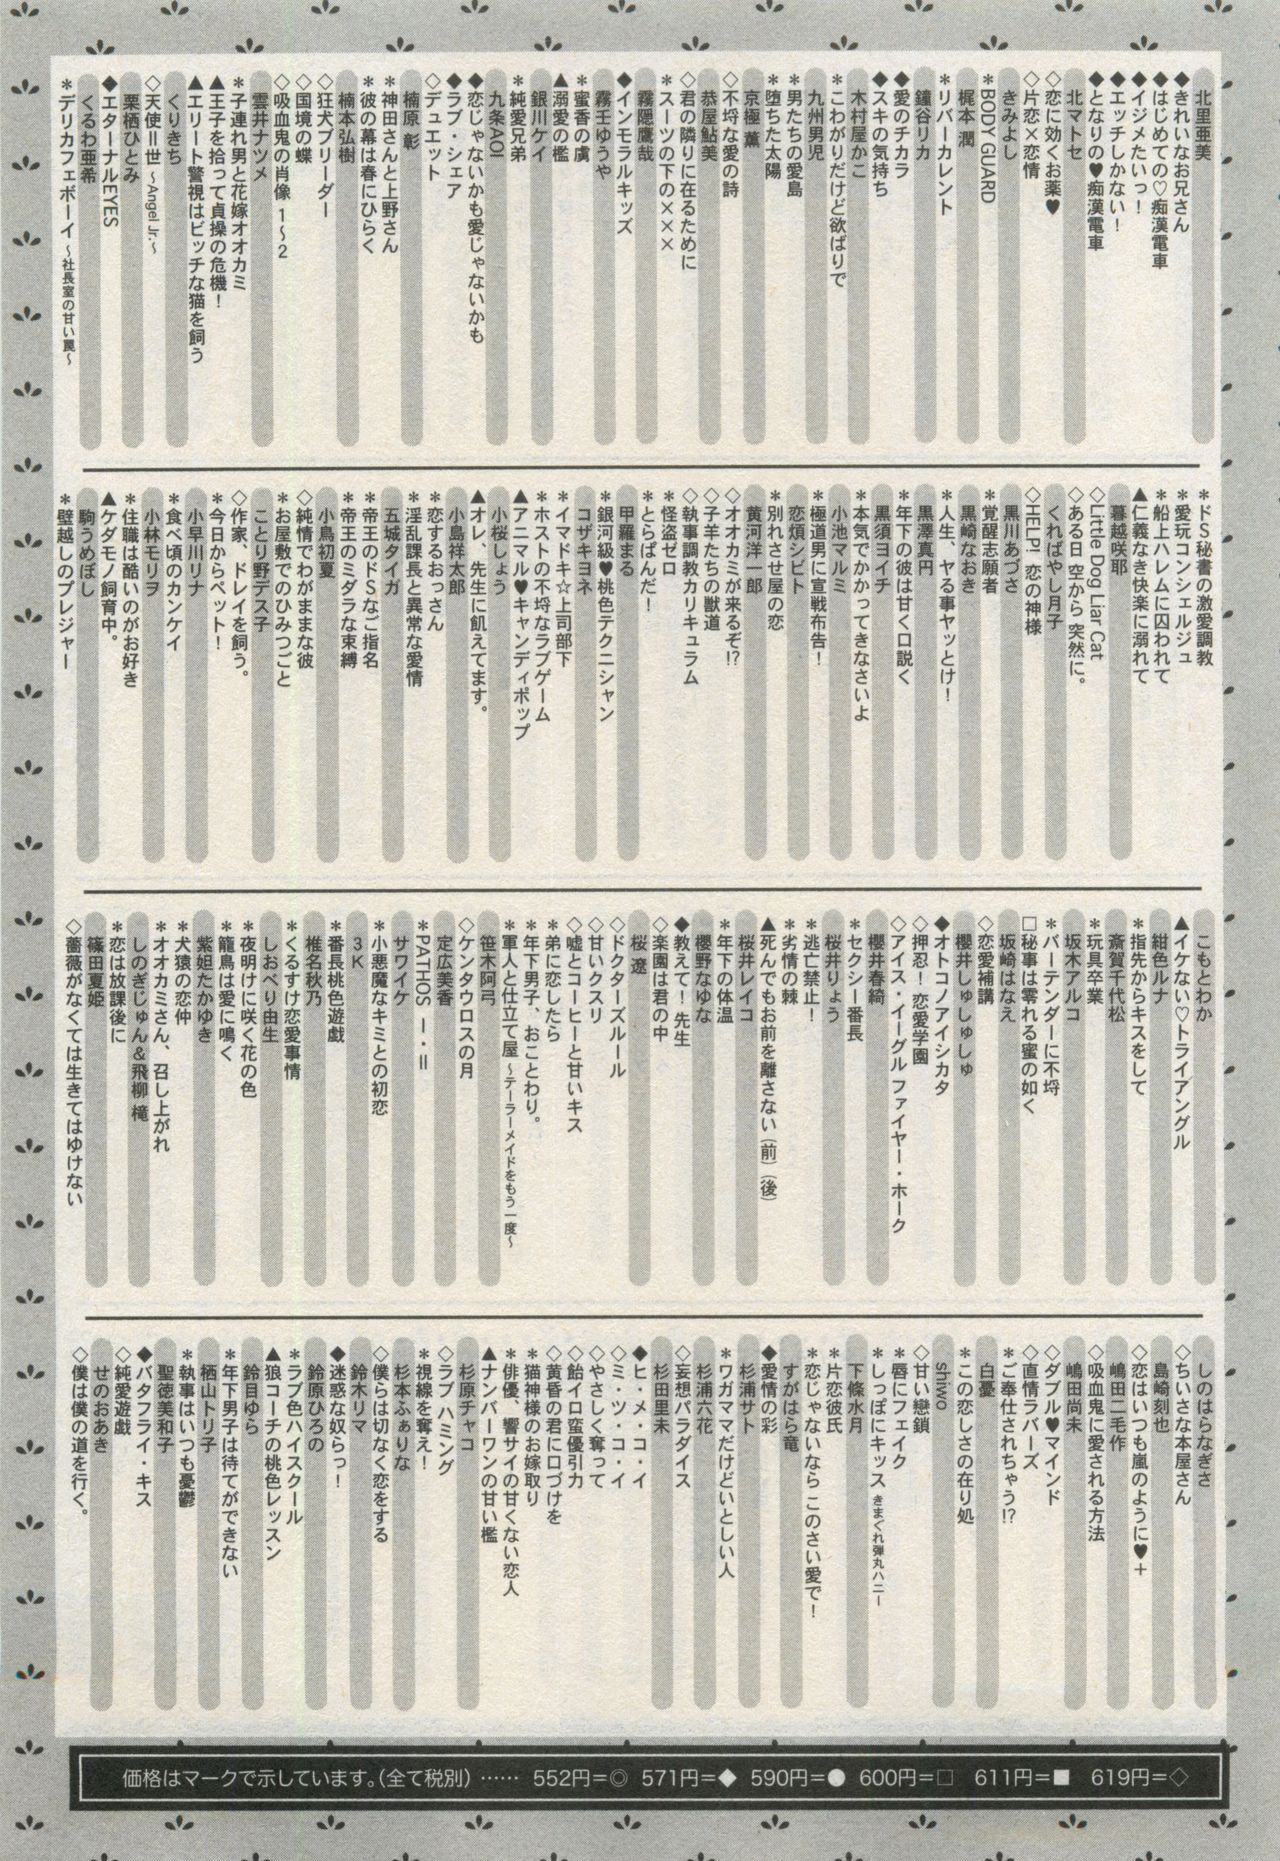 北里亜美
◆きれいなお兄さん
◆はじめての♡痴漢電車
◆イジメたいっ！
◆エッチしかない！
◆となりの♥痴漢電車
北マトセ
◇恋に効くお薬♥
◇片恋×恋情
きみよし
＊BODY GUARD
梶本 潤
＊リバーカレント
鐘谷リカ
◆愛のチカラ
◆スキの気持ち
木村屋かこ
＊こわがりだけど欲ばりで
九州男児
＊男たちの愛島
＊堕ちた太陽
京極 薫
◇不埒な愛の詩
恭屋鮎美
◇君の隣りに在るために
＊スーツの下の×××
霧隠鷹哉
◆インモラルキッズ
霧壬ゆうや
＊蜜香の虜
▲溺愛の檻
銀川ケイ
＊純愛兄弟
九条AOI
◆恋じゃないかも愛じゃないかも
◆ラブ・シェア
◇デュエット
楠原 彰
＊神田さんと上野さん
＊彼の幕は春にひらく
楠本弘樹
◇狂犬ブリーダー
◇国境の蝶
◇吸血鬼の肖像 1～2
雲井ナツメ
＊子連れ男と花嫁オオカミ
▲王子を拾って貞操の危機！
▲エリート警視はビッチな猫を飼う
くりきち
◇天使Ⅱ世 ～Angel Jr.～
栗栖ひとみ
◆エターナルEYES
くるわ亜希
＊デリカフェボーイ ～社長室の甘い罠～
＊ドS秘書の激愛調教
＊愛玩コンシェルジュ
＊船上ハレムに囚われて
▲仁義なき快楽に溺れて
暮越咲耶
◇Little Dog Liar Cat
◇ある日 空から 突然に。
くればやし月子
◇HELP! 恋の神様
黒川あづさ
＊覚醒志願者
黒崎なおき
＊人生、ヤる事ヤッとけ！
黒澤真円
＊年下の彼は甘く口説く
黒須ヨイチ
＊本気でかかってきなさいよ
小池マルミ
＊極道男に宣戦布告！
恋煩シビト
＊別れさせ屋の恋
黄河洋一郎
◇オオカミが来るぞ!?
◇子羊たちの獣道
◇執事調教カリキュラム
＊怪盗ゼロ
＊とらぱんだ！
甲羅まる
＊銀河級♥桃色テクニシャン
コザキヨネ
＊イマドキ☆上司部下
＊ホストの不埒なラブゲーム
▲アニマル♥キャンディポップ
小桜しょう
▲オレ、先生に飢えてます。
小島祥太郎
＊恋するおっさん
＊淫乱課長と異常な愛情
五城タイガ
＊帝王のドSなご指名
＊帝王のミダラな束縛
小鳥初夏
◇純情でわがままな彼
＊お屋敷でのひみつごと
ことり野デス子
◇作家、ドレイを飼う。
＊今日からペット！
小早川リナ
＊食べ頃のカンケイ
小林モリヲ
＊住職は酷いのがお好き
▲ケダモノ飼育中。
駒うめぼし
＊壁越しのプレジャー
こもとわか
▲イケない♡トライアングル
紺色ルナ
＊指先からキスをして
斎賀千代松
＊玩具卒業
坂木アルコ
＊バーテンダーに不埒
□秘事は零れる蜜の如く
坂崎はなえ
◇恋愛補講
櫻井しゅしゅしゅ
◆オトコノアイシカタ
◇押忍！恋愛学園
◇アイス・イーグル ファイヤー・ホーク
櫻井春綺
＊セクシー番長
桜井りょう
＊逃亡禁止！
＊劣情の棘
▲死んでもお前を離さない（前）（後）
桜井レイコ
＊年下の体温
櫻野なゆな
◆教えて！先生
◇楽園は君の中
桜 遼
◇ドクターズルール
◇甘いクスリ
◇嘘とコーヒーと甘いキス
＊弟に恋したら
＊年下男子、おことわり。
＊軍人と仕立て屋 ～テーラーメイドをもう一度～
笹木阿弓
◇ケンタウロスの月
定広美香
＊PATHOS Ⅰ・Ⅱ
サワイケ
＊小悪魔なキミとの初恋
3K
＊番長桃色遊戯
椎名秋乃
＊くるすけ恋愛事情
しおべり由生
＊夜明けに咲く花の色
＊籠鳥は愛に鳴く
紫妲たかゆき
＊犬猿の恋仲
＊オオカミさん、召し上がれ
しのぎじゅん&飛柳 槞
＊恋は放課後に
篠田夏姫
◇薔薇がなくては生きてはゆけない
しのはらなぎさ
◇ちいさな本屋さん
島崎刻也
◇恋はいつも嵐のように♥＋
嶋田二毛作
◇吸血鬼に愛される方法
嶋田尚未
◇ダブル♥マインド
◇直情ラバーズ
＊ご奉仕されちゃう!?
白憂
＊この恋しさの在り処
shiwo
◇甘い戀鎖
＊唇にフェイク
＊しっぽにキッス きまぐれ弾丸ハニー
下條水月
＊片恋彼氏
＊恋じゃないなら このさい愛で！
すがはら竜
◆愛情の彩
杉浦サト
＊ワガママだけどいとしい人
杉浦六花
◇妄想パラダイス
杉田里未
◆ヒ・メ・コ・イ
◇ミ・ツ・コ・イ
◇やさしく奪って
◇飴イロ蛮優引力
◇黄昏の君に口づけを
＊猫神様のお嫁取り
＊俳優、響サイの甘くない恋人
▲ナンバーワンの甘い檻
杉原チャコ
◇ラブ ハミング
＊視線を奪え！
杉本ふぁりな
◇僕らは切なく恋をする
鈴木リマ
◆迷惑な奴らっ！
鈴原ひろの
＊ラブ色ハイスクール
▲狼コーチの桃色レッスン
鈴目ゆら
＊年下男子は待てができない
栖山トリ子
＊執事はいつも憂鬱
聖徳美和子
◆バタフライ・キス
◇純愛遊戯
せのおあき
◇僕は僕の道を行く。
価格はマークで示しています。（全て税別）…… 552円＝◎ 571円＝◆ 590円＝● 600円＝□ 611円＝■ 619円＝◇